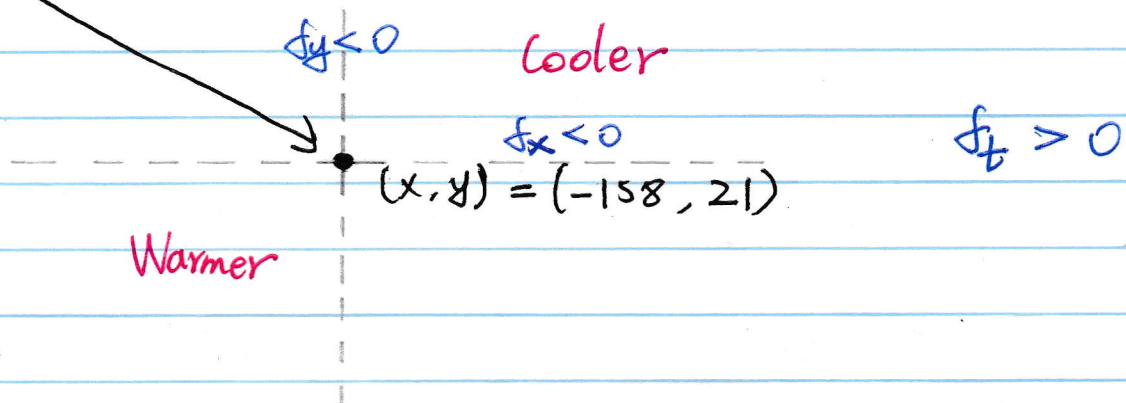 fy < 0
Cooler
fx < 0
ft > 0
(x, y) = (-158, 21)
Warmer